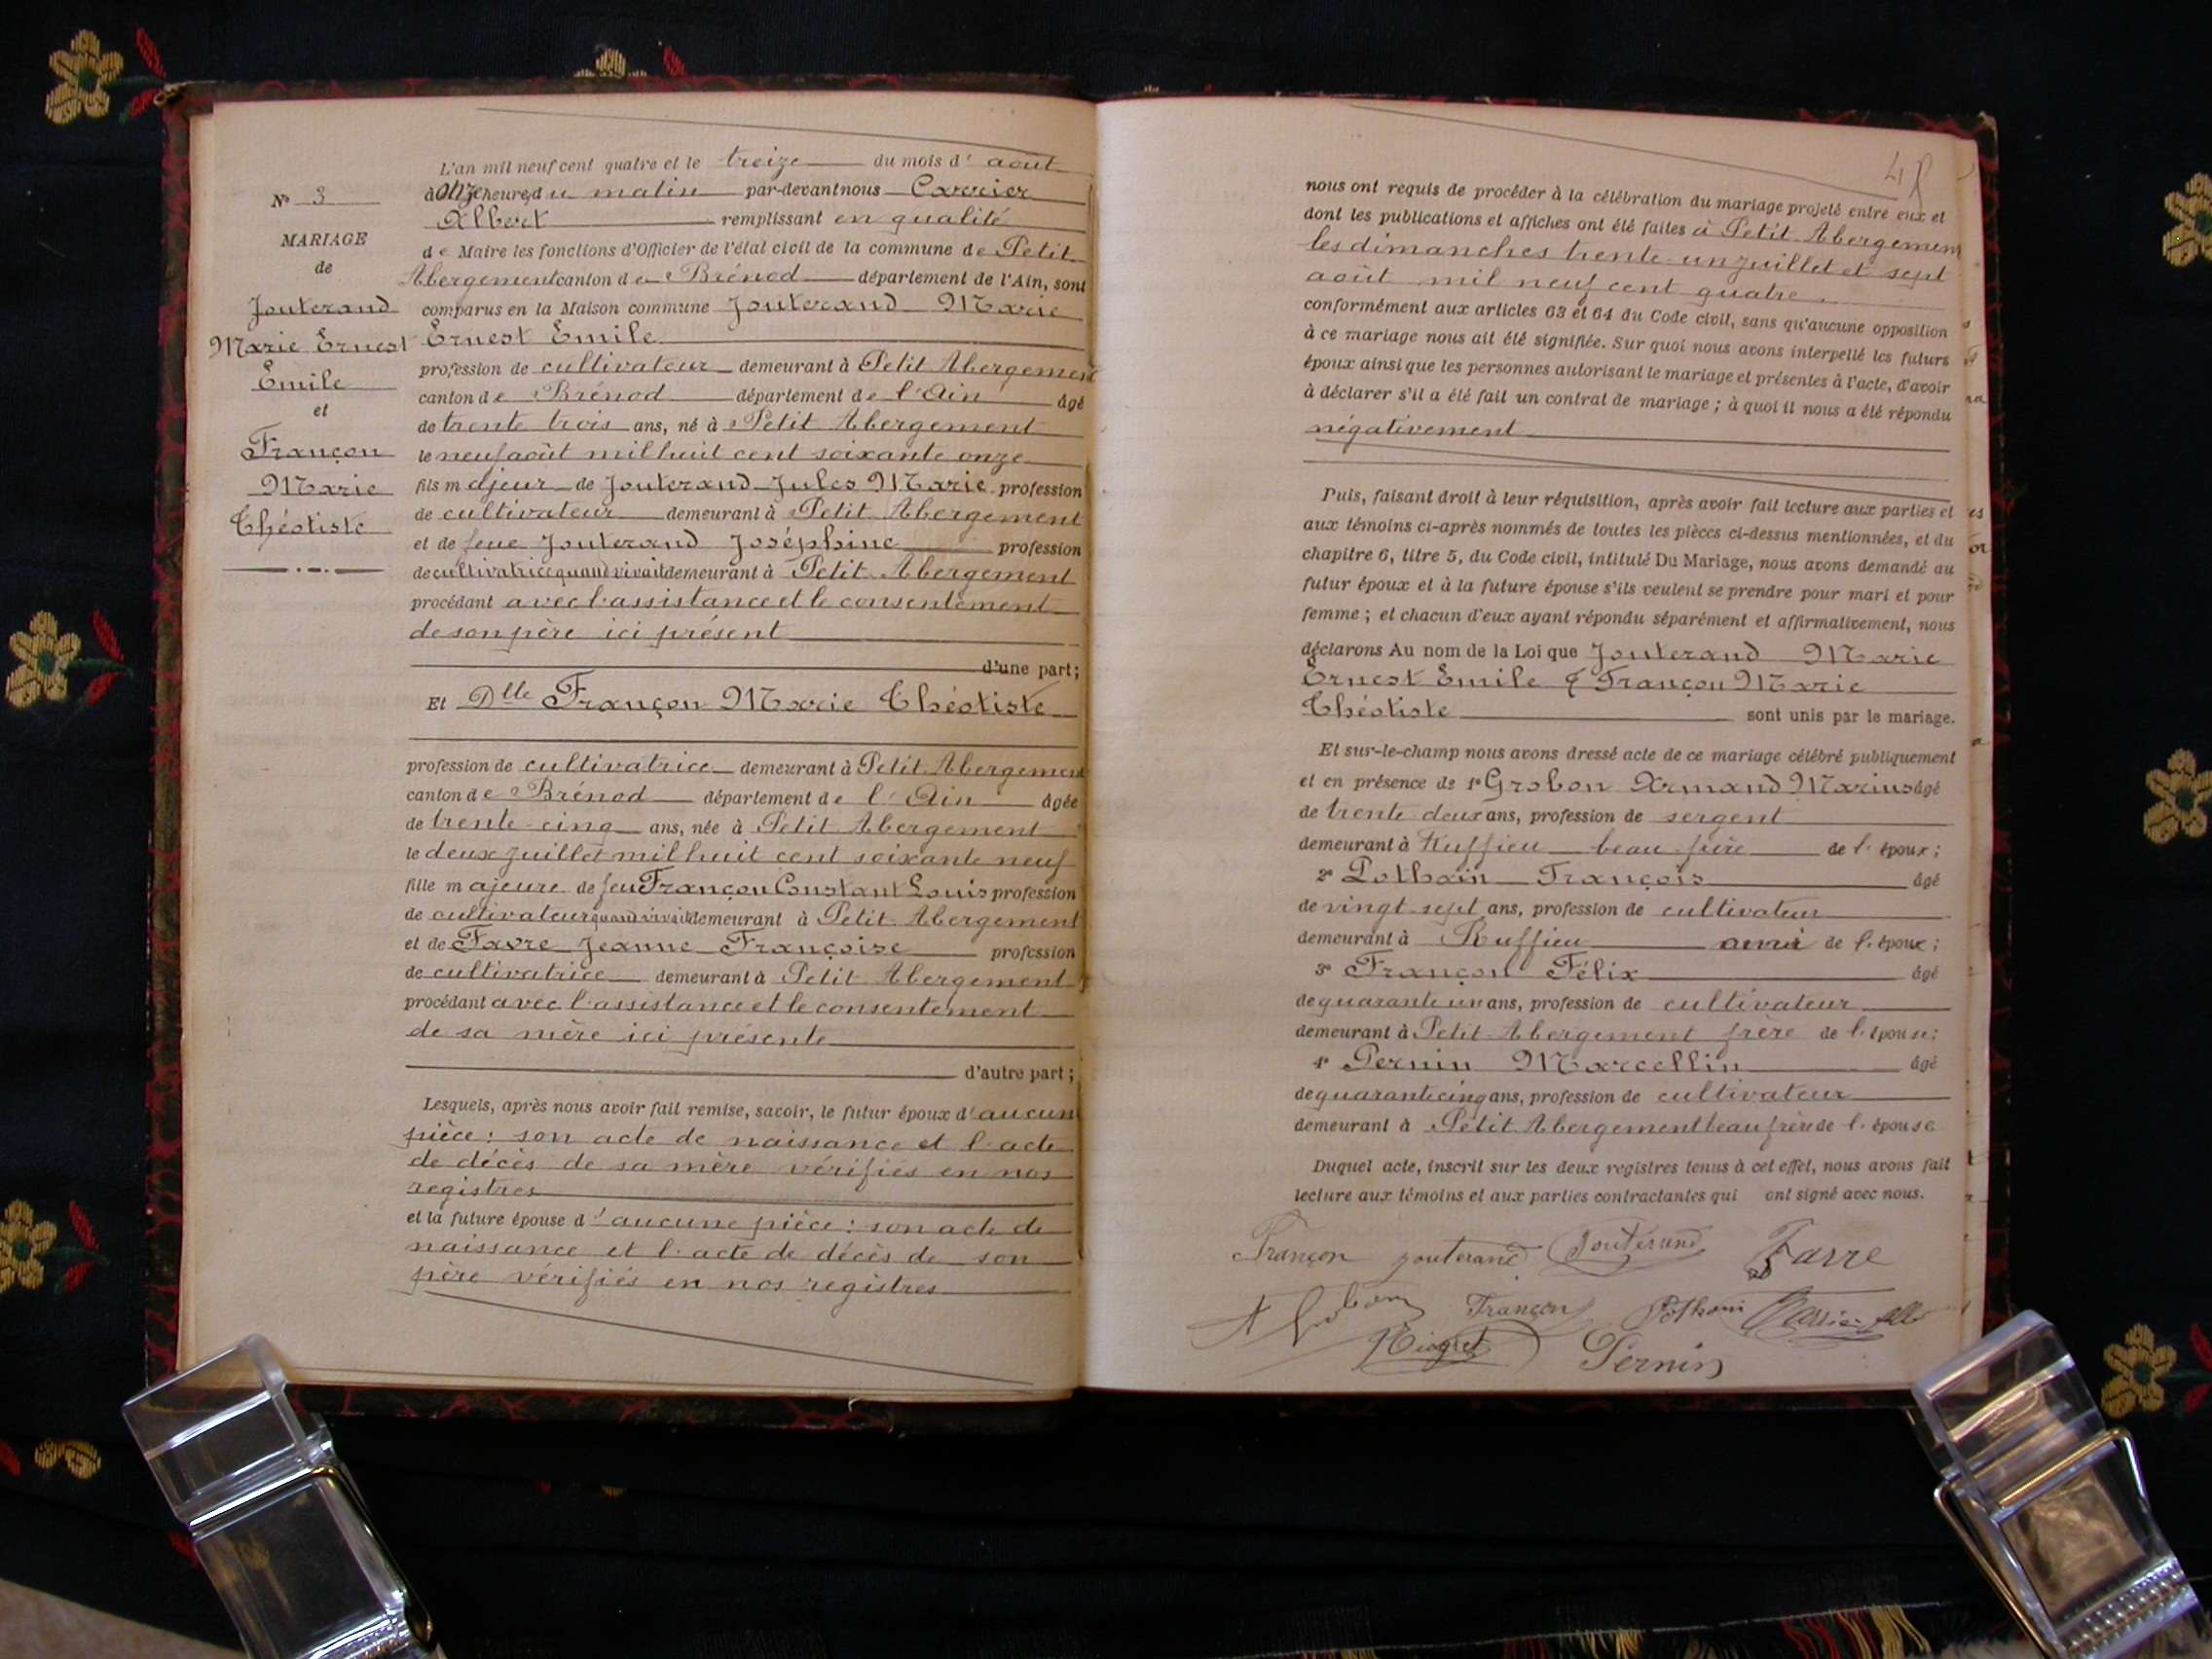 L'an mil neuf cent quatre et le treize du mois d'août
à onze heures du matin par-devant nous Carrier
Albert remplissant en qualité
de Maire les fonctions d'Officier de l'état civil de la commune de Petit
Abergement canton de Brénod département de l'Ain, sont
comparus en la Maison commune Jouterand Marie
Ernest Emile
profession de cultivateur demeurant à Petit Abergement
canton de Brénod département de l'Ain âgé
de trente trois ans, né à Petit Abergement
le neuf août mil huit cent soixante onze
fils majeur de Jouterand Jules Marie profession
de cultivateur demeurant à Petit Abergement
et de feue Jouterand Joséphine profession
de cultivatrice quand vivait demeurant à Petit Abergement
procédant avec l'assistance et le consentement
de son père ici présent
d'une part;
Et Dlle Françon Marie Théotiste
profession de cultivatrice demeurant à Petit Abergement
canton de Brénod département de l'Ain âgée
de trente-cinq ans, née à Petit Abergement
le deux juillet mil huit cent soixante neuf
fille majeure de feu Françon Constant Louis profession
de cultivateur quand vivait demeurant à Petit Abergement
et de Favre Jeanne Françoise profession
de cultivatrice demeurant à Petit Abergement
procédant avec l'assistance et le consentement
de sa mère ici présente
d'autre part;
Lesquels, après nous avoir fait remise, savoir, le futur époux d'aucune
pièce: son acte de naissance et l'acte
de décès de sa mère vérifiés en nos
registres
et la future épouse d'aucune pièce: son acte de
naissance et l'acte de décès de son
père vérifiés en nos registres
N° 3
MARIAGE
de
Jouterand
Marie Ernest
Emile
et
Françon
Marie
Théotiste
48
nous ont requis de procéder à la célébration du mariage projeté entre eux et
dont les publications et affiches ont été faites à Petit Abergement
les dimanches trente-un juillet et sept
août mil neuf cent quatre.
conformément aux articles 63 et 64 du Code civil, sans qu'aucune opposition
à ce mariage nous ait été signifiée. Sur quoi nous avons interpellé les futurs
époux ainsi que les personnes autorisant le mariage et présentes à l'acte, d'avoir
à déclarer s'il a été fait un contrat de mariage; à quoi il nous a été répondu
négativement
Puis, faisant droit à leur réquisition, après avoir fait lecture aux parties et
aux témoins ci-après nommés de toutes les pièces ci-dessus mentionnées, et du
chapitre 6, titre 5, du Code civil, intitulé Du Mariage, nous avons demandé au
futur époux et à la future épouse s'ils veulent se prendre pour mari et pour
femme; et chacun d'eux ayant répondu séparément et affirmativement, nous
déclarons Au nom de la Loi que Jouterand Marie
Ernest Emile & Françon Marie
Théotiste sont unis par le mariage.
Et sur-le-champ nous avons dressé acte de ce mariage célébré publiquement
et en présence de 1° Grobon Armand Marius âgé
de trente deux ans, profession de sergent
demeurant à Ruffieu beau-frère de l'époux;
2° Pothain François âgé
de vingt-sept ans, profession de cultivateur
demeurant à Ruffieu ami de l'époux;
3° Françon Félix âgé
de quarante un ans, profession de cultivateur
demeurant à Petit Abergement frère de l'épouse;
4° Pernin Marcellin âgé
de quarante cinq ans, profession de cultivateur
demeurant à Petit Abergement beau frère de l'épouse
Duquel acte, inscrit sur les deux registres tenus à cet effet, nous avons fait
lecture aux témoins et aux parties contractantes qui ont signé avec nous.
Françon Jouterand Joutérand Favre
A Grobon Françon Pothain
Pernin